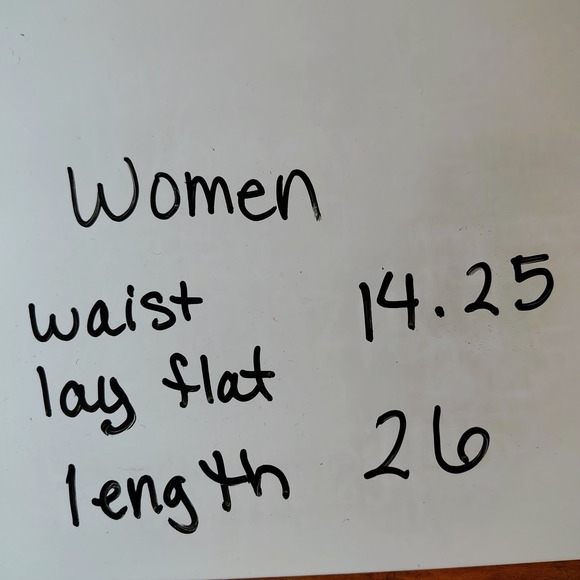 Women
waist 14.25
lay flat
length 26